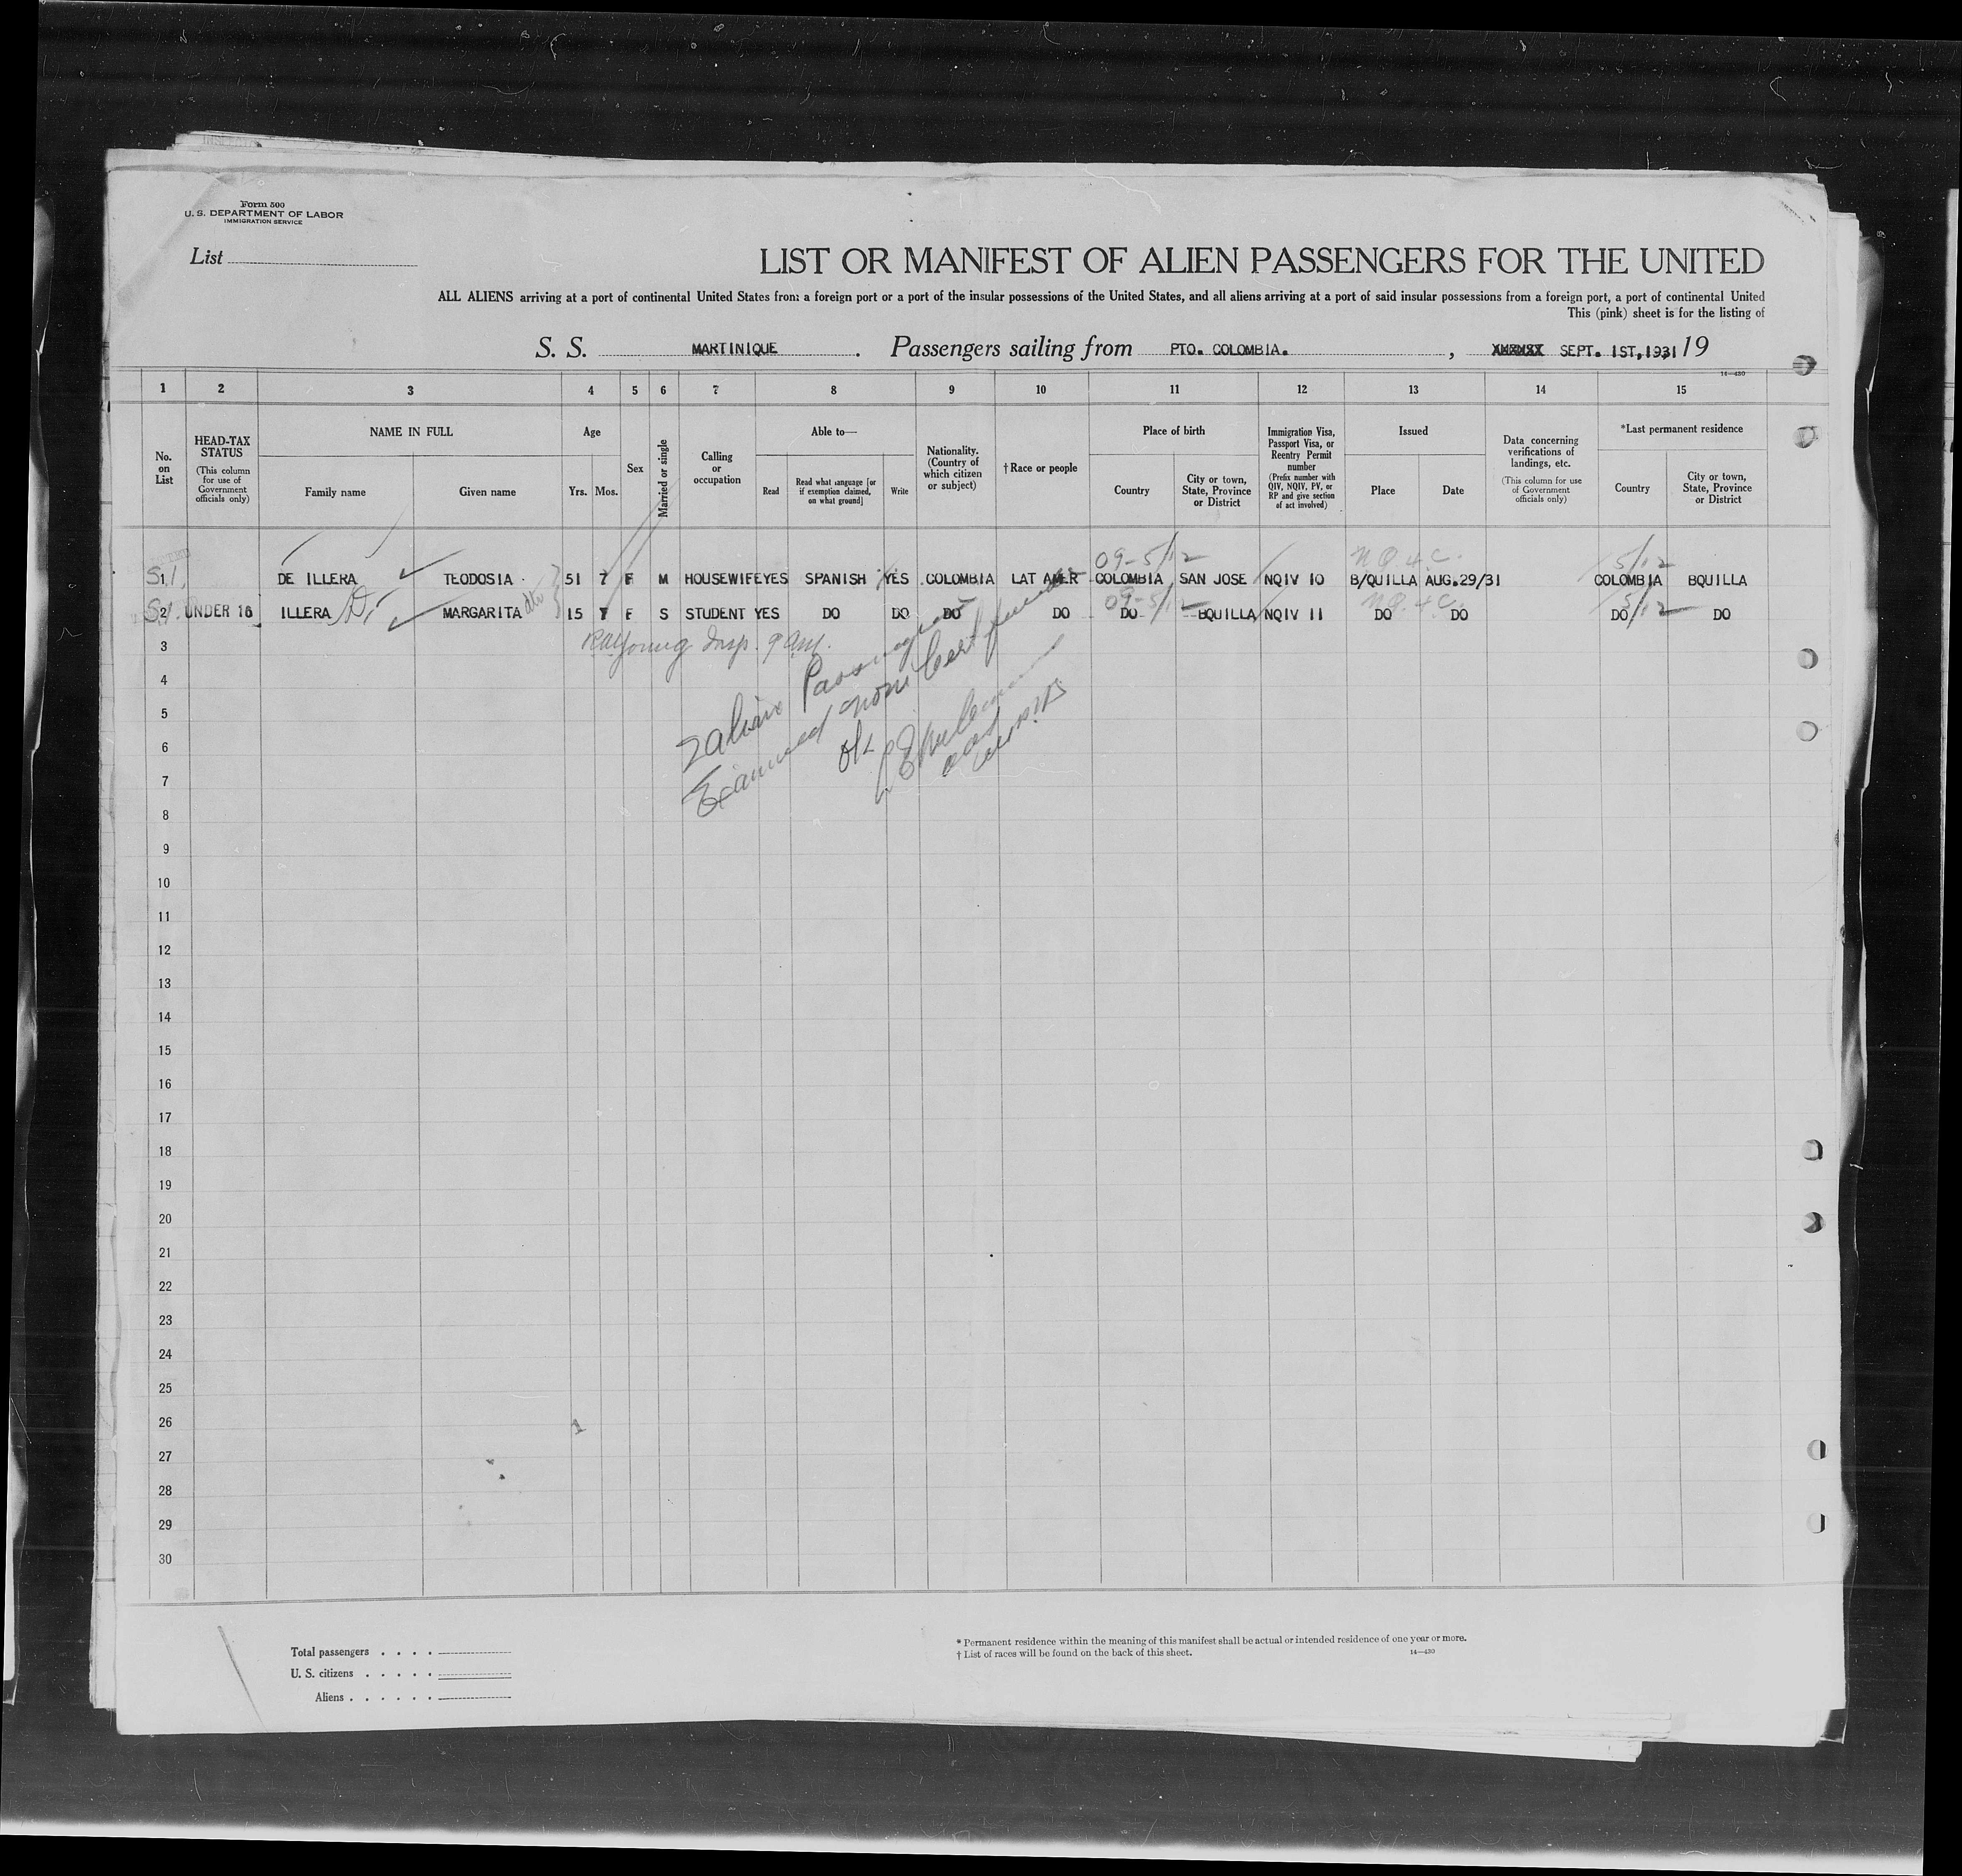 Form 500
U. S. DEPARTMENT OF LABOR
IMMIGRATION SERVICE
List
LIST OR MANIFEST OF ALIEN PASSENGERS FOR THE UNITED
ALL ALIENS arriving at a port of continental United States from a foreign port or a port of the insular possessions of the United States, and all aliens arriving at a port of said insular possessions from a foreign port, a port of continental United
This (pink) sheet is for the listing of
S. S. MARTINIQUE. Passengers sailing from PTO. COLOMBIA. , SEPT. 1ST,1931 19
14—430
1 2 3 4 5 6 7 8 9 10 11 12 13 14 15
No. on List
HEAD-TAX STATUS (This column for use of Government officials only)
NAME IN FULL
Family name
Given name
Age
Yrs. Mos.
Sex
Married or single
Calling or occupation
Able to—
Read
Read what language [or if exemption claimed, on what ground]
Write
Nationality. (Country of which citizen or subject)
† Race or people
Place of birth
Country
City or town, State, Province or District
Immigration Visa, Passport Visa, or Reentry Permit number (Prefix number with QIV, NQIV, PV, or RP and give section of act involved)
Issued
Place
Date
Data concerning verifications of landings, etc. (This column for use of Government officials only)
*Last permanent residence
Country
City or town, State, Province or District
09-5/12 N.Q.4.C. 5/12
1 DE ILLERA TEODOSIA 51 7 F M HOUSEWIFE YES SPANISH YES COLOMBIA LAT AMER COLOMBIA SAN JOSE NQIV 10 B/QUILLA AUG.29/31 COLOMBIA BQUILLA
09-5/12 N.Q.4C. 5/12
2 UNDER 16 ILLERA D. MARGARITA dtr 15 7 F S STUDENT YES DO DO DO DO DO BQUILLA NQIV 11 DO DO DO DO
3 RAYoung Insp. 9 AM.
4
5
6
7
8
9
10
11
12
13
14
15
16
17
18
19
20
21
22
23
24
25
26
27
28
29
30
2 alien Passengers
Examined
Total passengers . . . .
U. S. citizens . . . . .
Aliens . . . . . .
* Permanent residence within the meaning of this manifest shall be actual or intended residence of one year or more.
† List of races will be found on the back of this sheet.
14—430